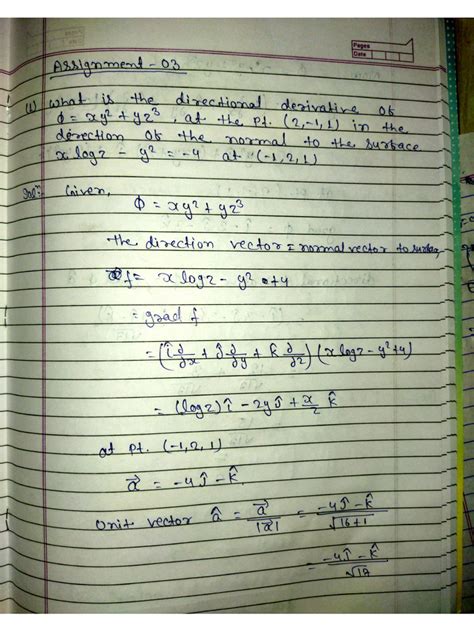 Pages
Date
Assignment - 03
(1) What is the directional derivative of
ϕ = xy² + yz³, at the pt. (2,-1,1) in the
derection of the normal to the surface
x log z - y² = -4 at (-1,2,1)
Given,
ϕ = xy² + yz³
the direction vector = normal vector to
f = x log z - y² + 4
= grad f
= (î ∂/∂x + ĵ ∂/∂y + k̂ ∂/∂z) (x log z - y² + 4)
= (log z) î - 2y ĵ + x/z k̂
at pt. (-1,2,1)
a⃗ = -4ĵ - k̂
Unit vector â = a⃗/|a⃗| = (-4ĵ - k̂)/√(16+1)
= (-4ĵ - k̂)/√17